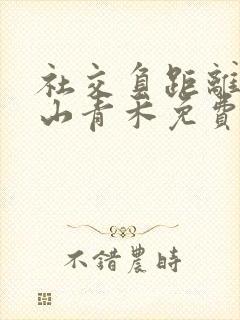 社交負距離
山青木免費
不錯農時